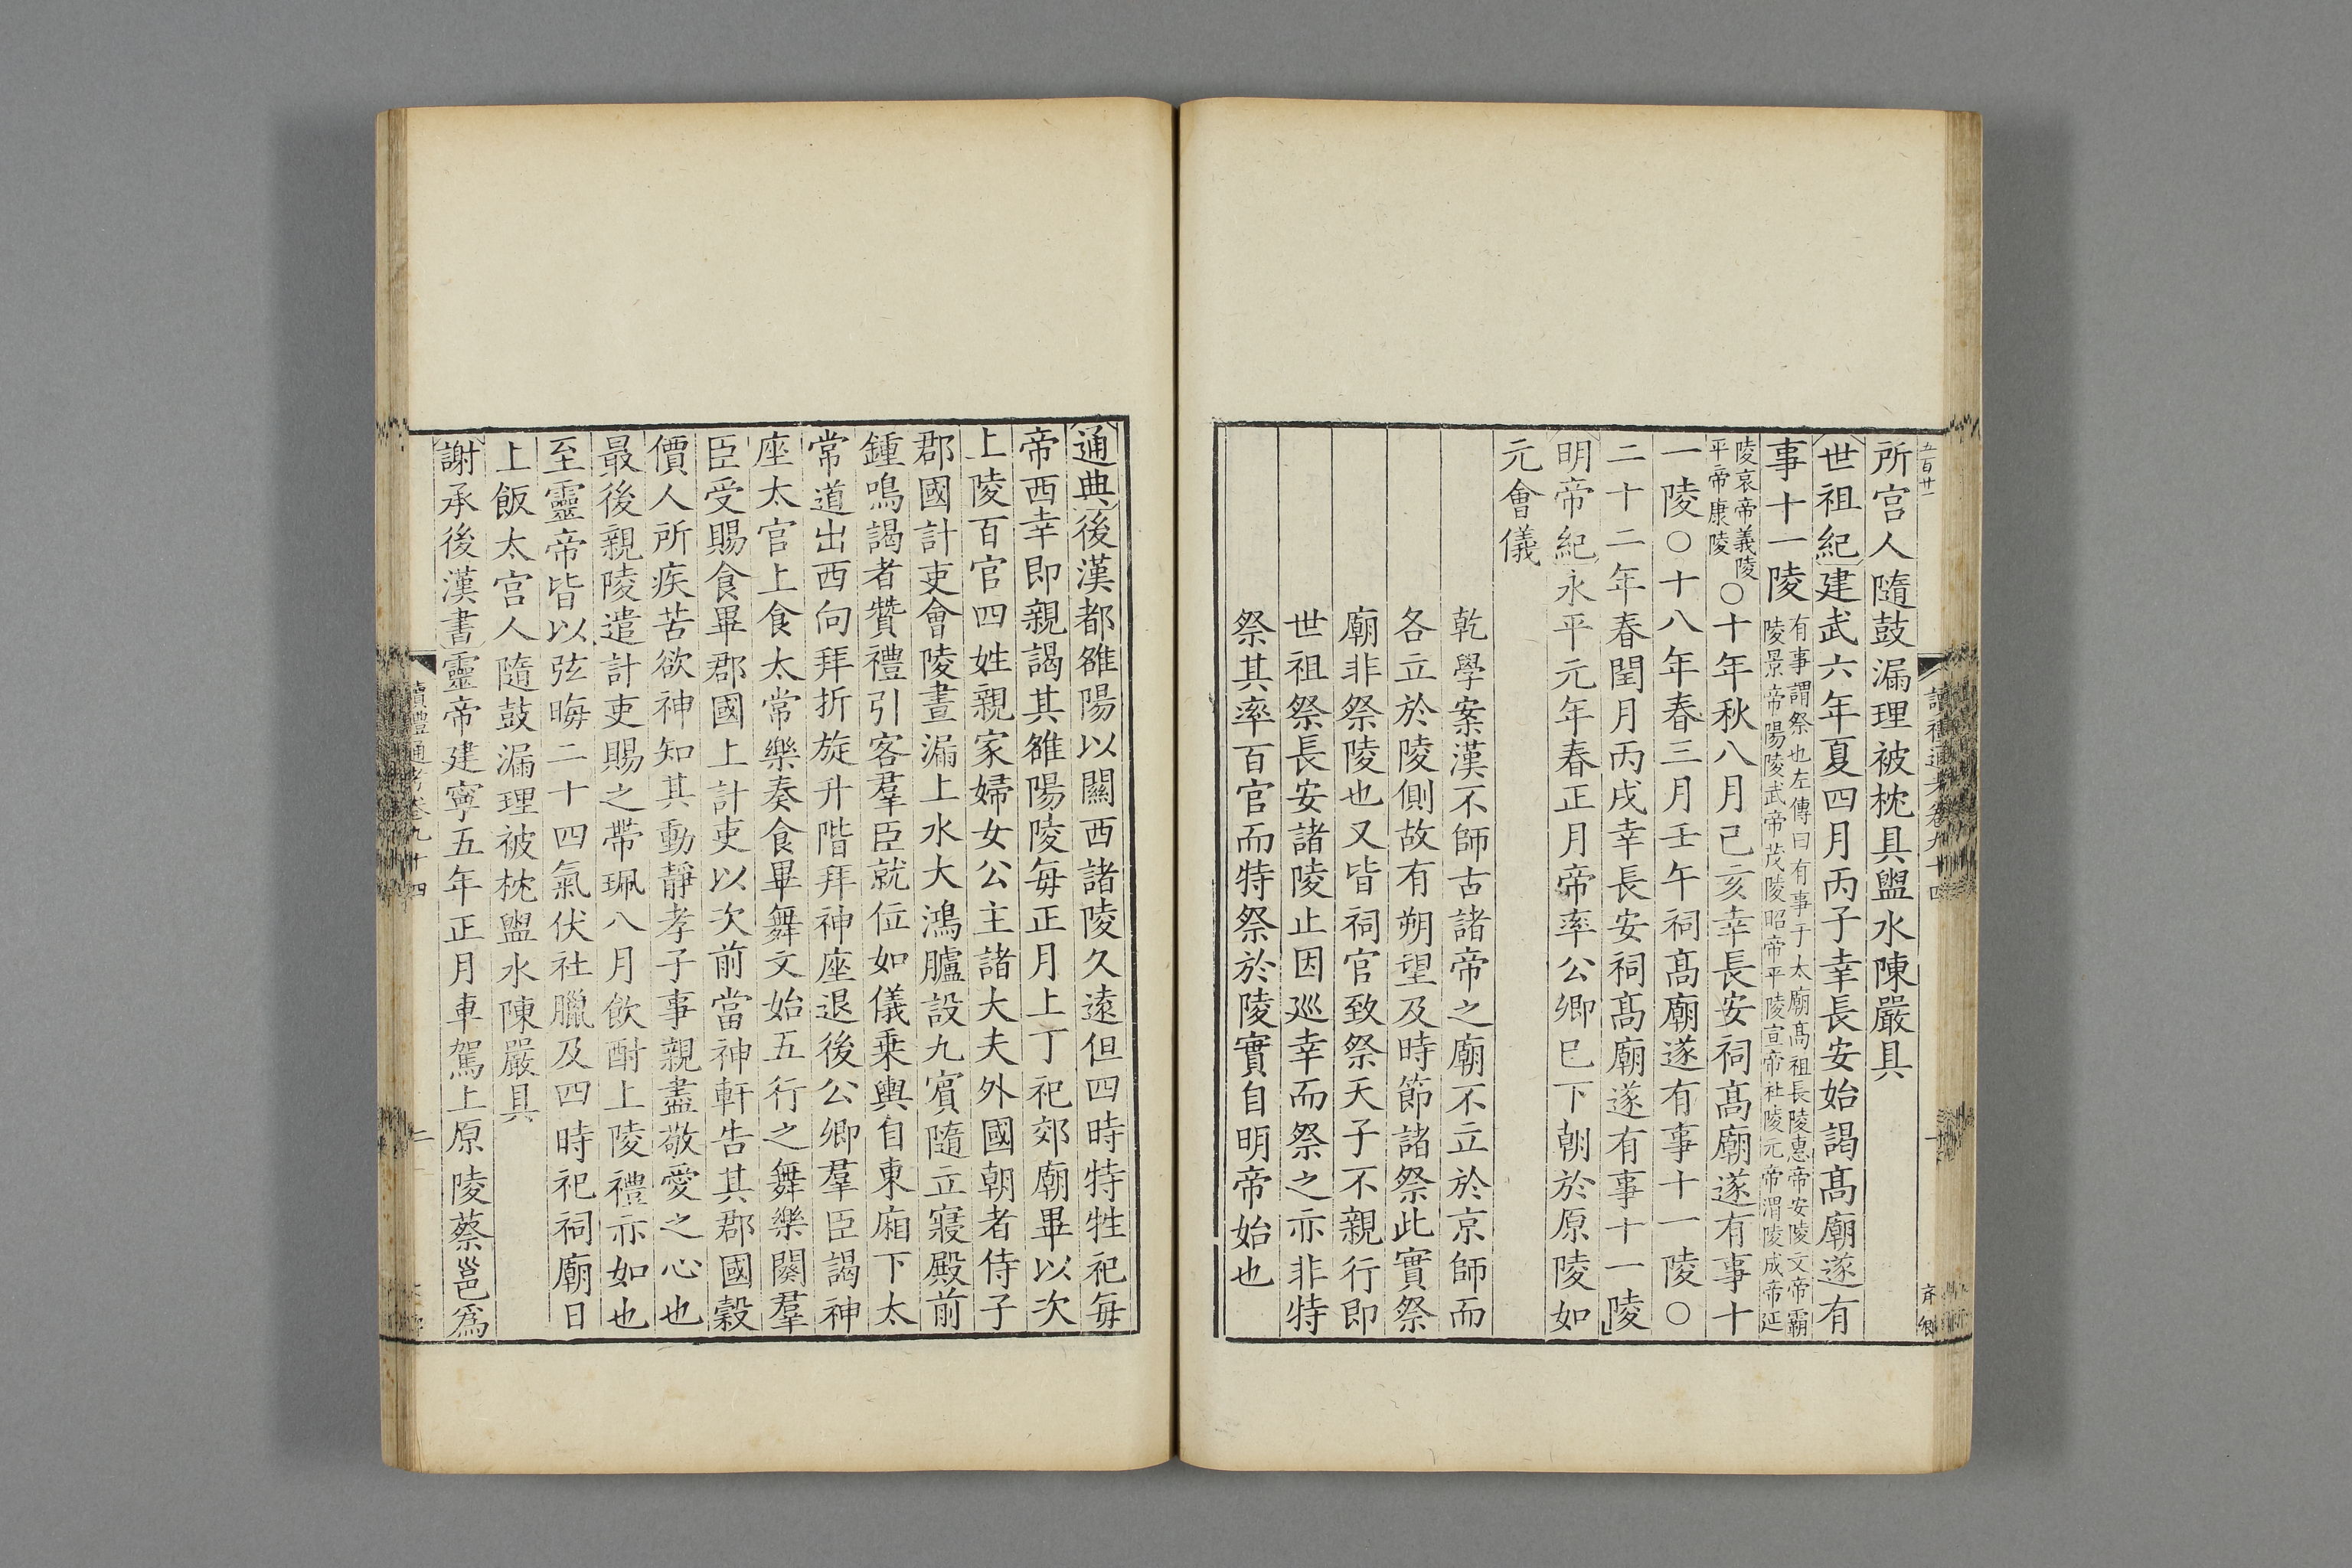 五百廿一
所宫人隨鼓漏理被枕具盥水陳嚴具
世祖紀建武六年夏四月丙子幸長安始謁髙廟遂有
事十一陵有事謂祭也左傳曰有事于太廟髙祖長陵惠帝安陵文帝霸
陵景帝陽陵武帝茂陵昭帝平陵宣帝社陵元帝渭陵成帝延
陵哀帝義陵
平帝康陵○十年秋八月己亥幸長安祠髙廟遂有事十
一陵○十八年春三月壬午祠髙廟遂有事十一陵○
二十二年春閏月丙戌幸長安祠髙廟遂有事十一陵
明帝紀永平元年春正月帝率公卿巳下朝於原陵如
元會儀
乾學案漢不師古諸帝之廟不立於京師而
各立於陵側故有朔望及時節諸祭此實祭
廟非祭陵也又皆祠官致祭天子不親行即
世祖祭長安諸陵止因巡幸而祭之亦非特
祭其率百官而特祭於陵實自明帝始也
通典後漢都雒陽以關西諸陵久遠但四時特牲祀每
帝西幸即親謁其雒陽陵每正月上丁祀郊廟畢以次
上陵百官四姓親家婦女公主諸大夫外國朝者侍子
郡國計吏會陵晝漏上水大鴻臚設九賓隨立寢殿前
鍾鳴謁者贊禮引客羣臣就位如儀乗輿自東廂下太
常道出西向拜折旋升階拜神座退後公卿羣臣謁神
座太官上食太常樂奏食畢舞文始五行之舞樂闋羣
臣受賜食畢郡國上計吏以次前當神軒告其郡國穀
價人所疾苦欲神知其動靜孝子事親盡敬愛之心也
最後親陵遣計吏賜之帶珮八月飲酎上陵禮亦如也
至靈帝皆以弦晦二十四氣伏社臘及四時祀祠廟日
上飯太官人隨鼓漏理被枕盥水陳嚴具
謝承後漢書靈帝建寧五年正月車駕上原陵蔡邕爲
讀禮通考卷九十四
二